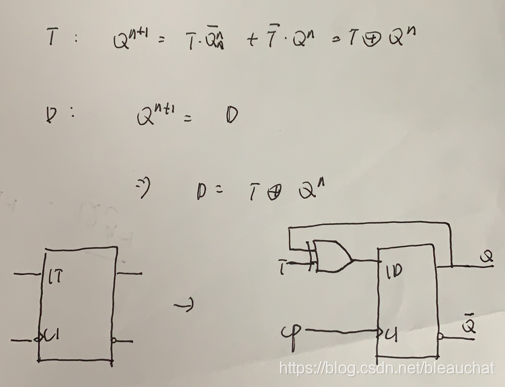 T : Qⁿ⁺¹ = T·Q̄ⁿ + T̄·Qⁿ = T⊕Qⁿ
D : Qⁿ⁺¹ = D
⇒ D = T ⊕ Qⁿ
1T
C1
→
T
1D
Q
CP
C1
Q̄
https://blog.csdn.net/bleauchat